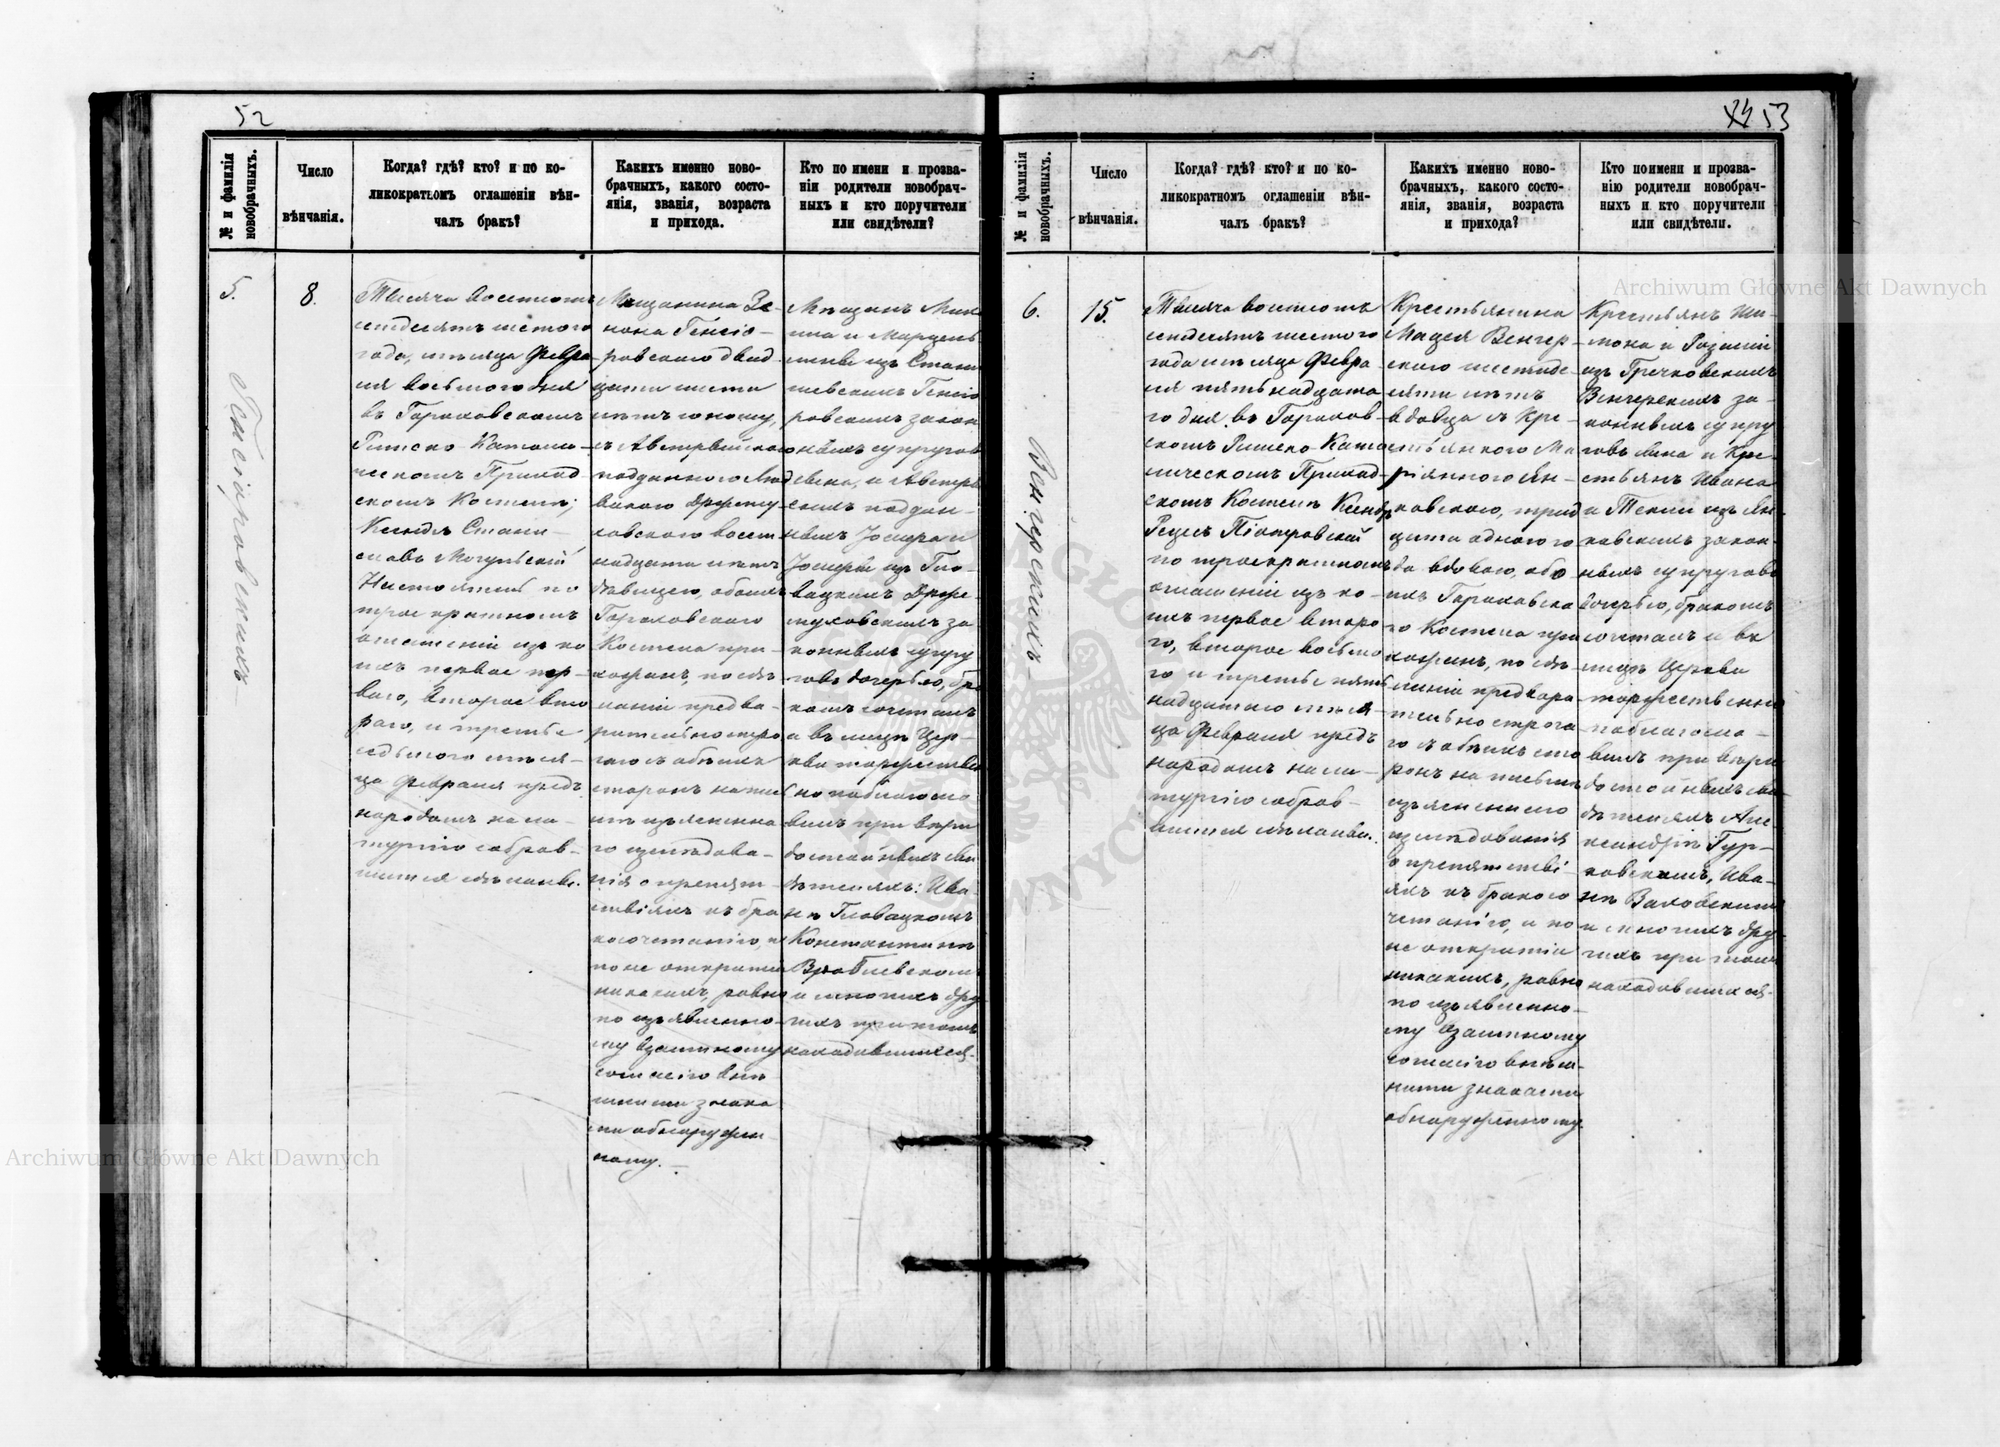 52
№ и фамилія новобрачныхъ.
Число вѣнчанія.
Когда? гдѣ? кто? и по ко-
ликократномъ оглашеніи вѣн-
чалъ бракъ?
Какихъ именно ново-
брачныхъ, какого состо-
янія, званія, возраста
и прихода.
Кто по имени и прозва-
ніи родители новобрач-
ныхъ и кто поручители
или свидѣтели?
5.
8.
Тысяча восемьсотъ
года, мѣсяца Февра
ля восьмого дня
въ Гороховскомъ
Римско-Католи-
ческомъ Приход-
скомъ Костелѣ;
Ксендзъ Стани-
славъ
по
трое кратномъ
оглашеніи изъ ко
ихъ первое пер-
ваго, второе вто
раго, и третье
седьмого мѣся-
ца Февраля предъ
народомъ на ли-
тургію собрав-
шимся
Мѣщанина Зе
нона
ровскаго двад
цати шести
лѣтъ юношу,
съ Австрійскою
подданного
восем
надцати лѣтъ
дѣвицею, обоихъ
Гороховскаго
Костела при-
хожанъ, по сдѣ
ланіи предва-
рительно стро
гаго съ обѣихъ
сторонъ на пись
мѣ изъясненна
го изслѣдова-
нія о препят-
ствіяхъ къ бра
косочетанію, и
по не открытіи
никакихъ, равно
по изъявленно-
му взаимному
согласію внѣ
шними знака
ми обнаружен-
ному.
Мѣщанъ
и
изъ
ровскихъ закон
ныхъ супруговъ
сына, и Австрій
скихъ поддан-
ныхъ Іосифа и
Іосифы изъ Гло-
вацкихъ
за
конныхъ супру
говъ дочерью, бра
комъ сочеталъ
и въ лицѣ Цер-
кви торжествен
но поблагосло
вилъ при вѣро
достойныхъ сви
дѣтеляхъ: Ива
нѣ Гловацкомъ
Константинѣ
и многихъ дру
гихъ при томъ
находившихся.
53
№ и фамилія новобрачныхъ.
Число вѣнчанія.
Когда? гдѣ? кто? и по ко-
ликократномъ оглашеніи вѣн-
чалъ бракъ?
Какихъ именно ново-
брачныхъ, какого состо-
янія, званія, возраста
и прихода?
Кто по имени и прозва-
нію родители новобрач-
ныхъ и кто поручители
или свидѣтели.
6.
Венгерскихъ
15.
Тысяча восемьсотъ
года мѣсяца Февра
ля пятьнадцата
го дня, въ Горохов-
скомъ Римско Като
лическомъ Приход-
скомъ Костелѣ Ксендзъ
Піотровскій
по троекратномъ
оглашеніи изъ ко-
ихъ первое второ
го, второе восьмо
го и третье пять
надцатаго мѣся-
ца Февраля предъ
народомъ на ли-
тургію собрав-
шимся
Крестьянина
Мацея Венгер-
скаго шестиде-
сяти лѣтъ
вдовца съ Кре-
стьянкою Ма-
ріянною Ян-
ковскою, трид
цати одного го
да вдовою, обо
ихъ Гороховска
го Костела при
хожанъ, по сдѣ
ланіи предвари
тельно строга
го съ обѣихъ сто
ронъ на письмѣ
изъясненнаго
изслѣдованія
о препятстві-
яхъ къ бракосо
четанію, и по
не открытіи
никакихъ, равно
по изъявленно-
му взаимному
согласію внѣш-
ними знаками
обнаруженному.
Крестьянъ Ши-
мона и Розаліи
изъ Гречковскихъ
Венгерскихъ за-
конныхъ супру
говъ сына и Кре-
стьянъ Ивана
и Теклы изъ Ян-
ковскихъ закон-
ныхъ супруговъ
дочерью, бракомъ
сочеталъ и въ
лицѣ Церкви
торжественно
поблагосло-
вилъ при вѣро
достойныхъ сви
дѣтеляхъ Але-
ксандрѣ Гур-
ковскомъ, Ива-
нѣ
и многихъ дру
гихъ при томъ
находившихся.
Archiwum Główne Akt Dawnych
Archiwum Główne Akt Dawnych